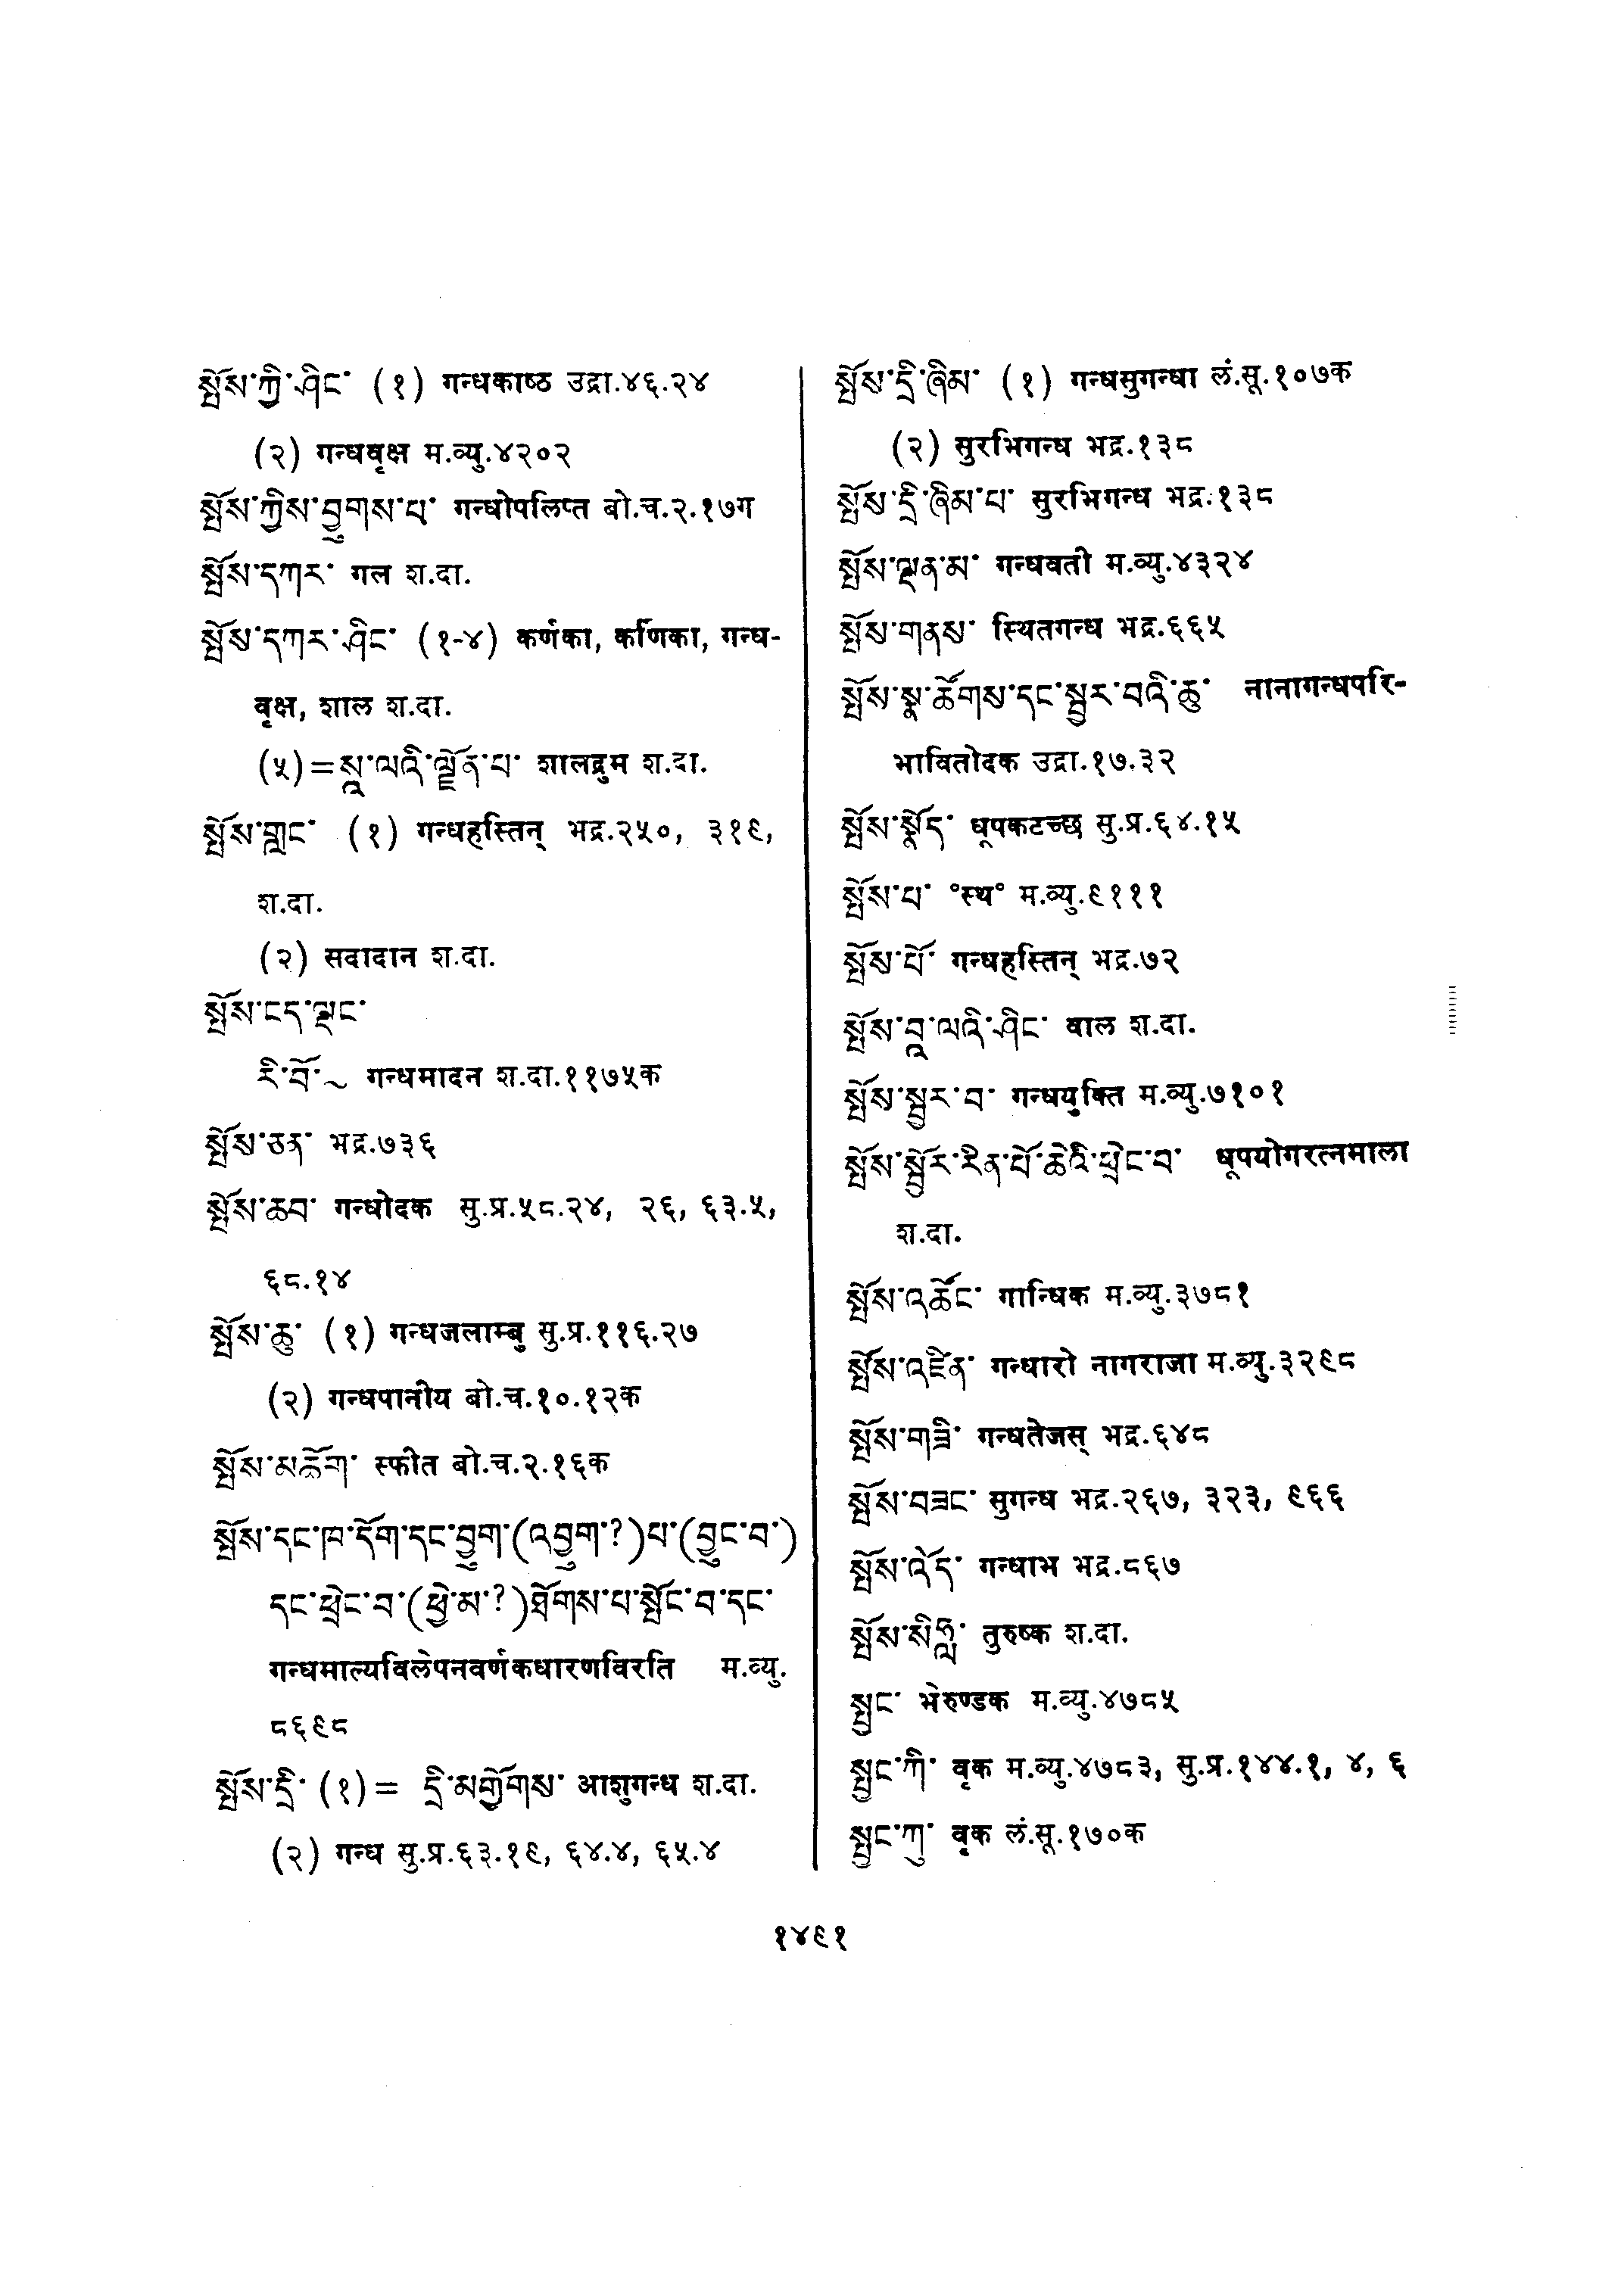 སྤོས་ཀྱི་ཤིང་ (१) गन्धकाष्ठ उद्रा.४६.२४
(२) गन्धवृक्ष म.व्यु.४२०२
སྤོས་ཀྱིས་བྱུགས་པ་ गन्धोपलिप्त बो.च.२.१७ग
སྤོས་དཀར་ गल श.दा.
སྤོས་དཀར་ཤིང་ (१-४) कर्णका, कर्णिका, गन्ध-
वृक्ष, शाल श.दा.
(५)=སཱ་ལའི་ལྗོན་པ་ शालद्रुम श.दा.
སྤོས་གླང་ (१) गन्धहस्तिन् भद्र.२५०, ३१९,
श.दा.
(२) सदादान श.दा.
སྤོས་ངད་ལྡང་
རི་བོ་~ गन्धमादन श.दा.११७५क
སྤོས་ཅན་ भद्र.७३६
སྤོས་ཆབ་ गन्धोदक सु.प्र.५८.२४, २६, ६३.५,
६८.१४
སྤོས་ཆུ་ (१) गन्धजलाम्बु सु.प्र.११६.२७
(२) गन्धपानीय बो.च.१०.१२क
སྤོས་མཆོག་ स्फीत बो.च.२.१६क
སྤོས་དང་ཁ་དོག་དང་བྱུག་(འབྱུག་?)པ་(བྱུང་བ་)
དང་ཕྲེང་བ་(ཕྱེ་མ་?)ཐོགས་པ་སྤོང་བ་དང་
गन्धमाल्यविलेपनवर्णकधारणविरति म.व्यु.
८६९८
སྤོས་དྲི་ (१)= དྲི་མགྱོགས་ आशुगन्ध श.दा.
(२) गन्ध सु.प्र.६३.१९, ६४.४, ६५.४
སྤོས་དྲི་ཞིམ་ (१) गन्धसुगन्धा लं.सू.१०७क
(२) सुरभिगन्ध भद्र.१३८
སྤོས་དྲི་ཞིམ་པ་ सुरभिगन्ध भद्र.१३८
སྤོས་ལྡན་མ་ गन्धवती म.व्यु.४३२४
སྤོས་གནས་ स्थितगन्ध भद्र.६६५
སྤོས་སྣ་ཚོགས་དང་སྦྱར་བའི་ཆུ་ नानागन्धपरि-
भावितोदक उद्रा.१७.३२
སྤོས་སྣོད་ धूपकटच्छ सु.प्र.६४.१५
སྤོས་པ་ °स्थ° म.व्यु.९१११
སྤོས་པོ་ गन्धहस्तिन् भद्र.७२
སྤོས་བཱ་ལའི་ཤིང་ वाल श.दा.
སྤོས་སྦྱར་བ་ गन्धयुक्ति म.व्यु.७१०१
སྤོས་སྦྱོར་རིན་པོ་ཆེའི་ཕྲེང་བ་ धूपयोगरत्नमाला
श.दा.
སྤོས་འཚོང་ गान्धिक म.व्यु.३७८१
སྤོས་འཛིན་ गन्धारो नागराजा म.व्यु.३२९८
སྤོས་གཟི་ गन्धतेजस् भद्र.६४८
སྤོས་བཟང་ सुगन्ध भद्र.२६७, ३२३, ९६६
སྤོས་འོད་ गन्धाभ भद्र.८६७
སྤོས་སིཧླ་ तुरुष्क श.दा.
སྤྱང་ भेरुण्डक म.व्यु.४७८५
སྤྱང་ཀི་ वृक म.व्यु.४७८३, सु.प्र.१४४.१, ४, ६
སྤྱང་ཀུ་ वृक लं.सू.१७०क
१४९१